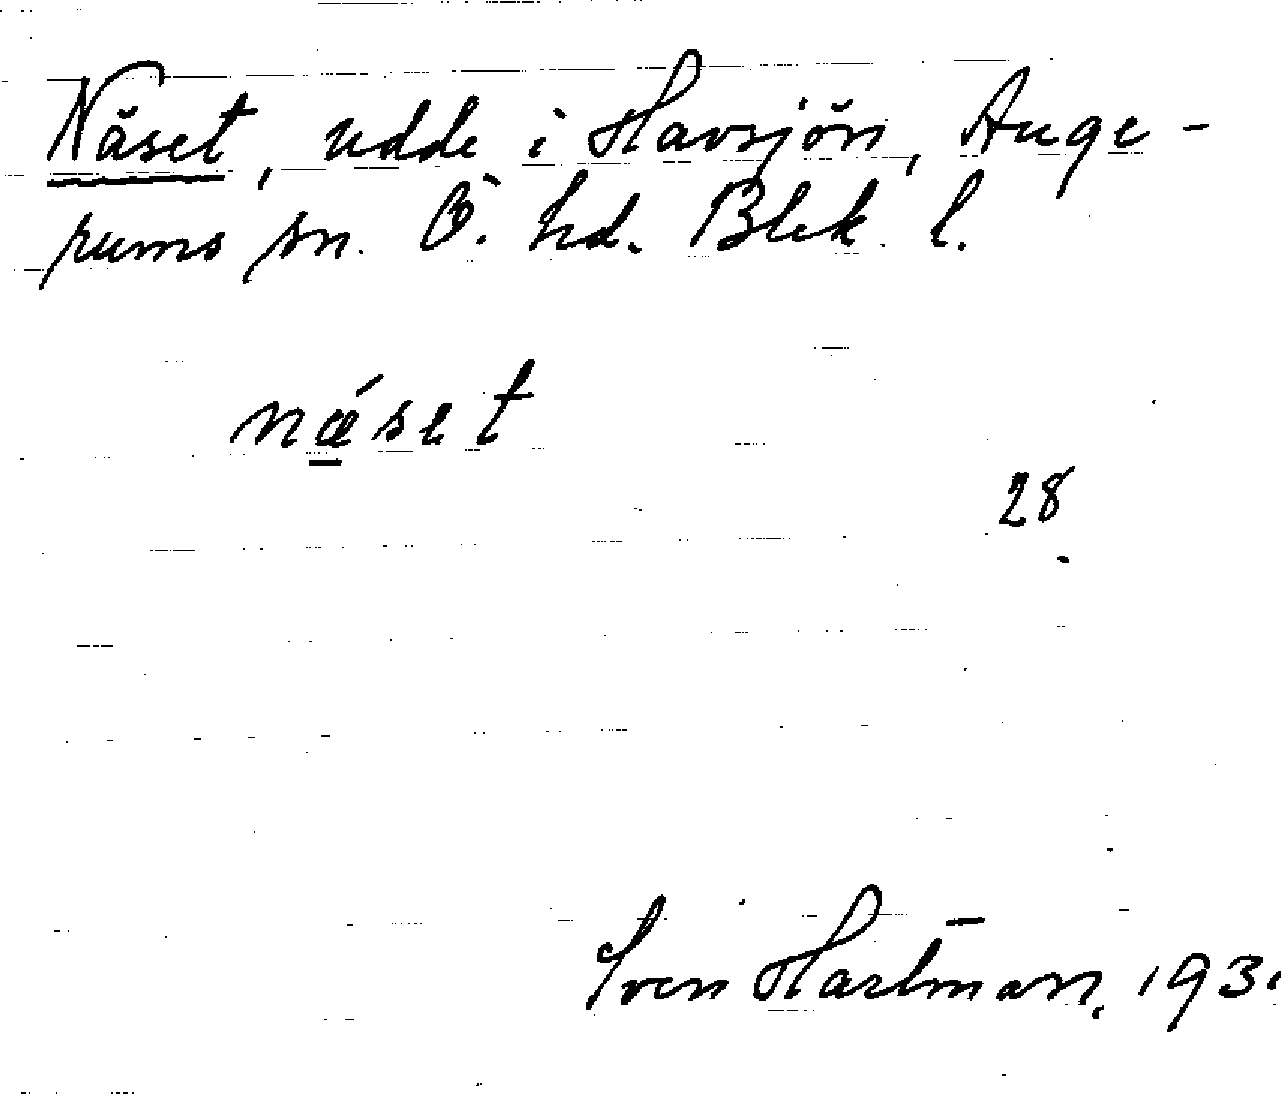 Näset, udde i Havsjön, Auge-
rums sn. Ö. hd. Blek. l.
nǽ̱set
28
Sven Hartman, 1931